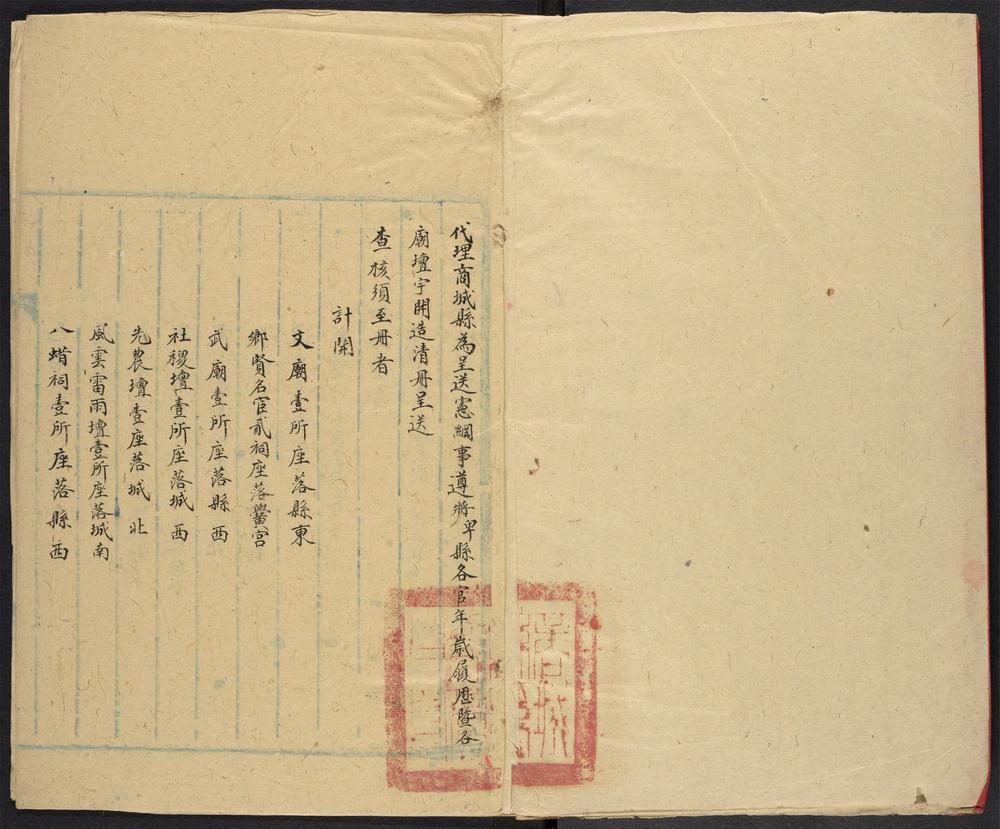 代理商城縣為呈送憲綱事遵將卑縣各官年歲履歷暨各
廟壇宇開造清冊呈送
查核須至冊者
計開
文廟壹所座落縣東
鄉賢名宦貳祠座落黌宮
武廟壹所座落縣西
社稷壇壹所座落城西
先農壇壹座落城北
風雲雷雨壇壹所座落城南
八蜡祠壹所座落縣西